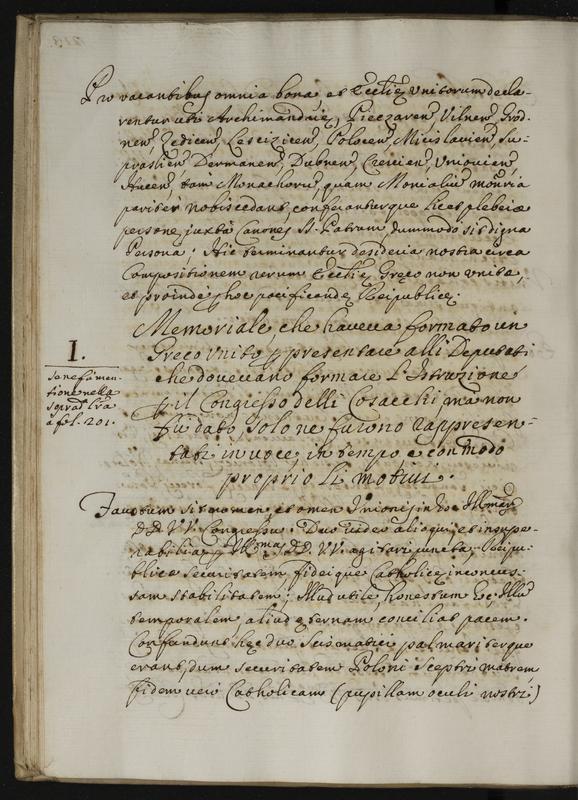 Pro vacantibus omnia bona et Eccliæ Unitorum decla-
rentur uti Archimandriæ, Pieczaren, Vilnen, Grod-
nen, Zedicen, Lesczicen, Polocen, Mścislavien, Su-
praslien Dermanen, Dubnen, Czercien, Uniovien,
Aucen tam Monachorũ, quam Monialiũ monria
pariter nobis cedant, conferanturque licet plebeiæ
personæ juxta Canones SS. Patrum, dummodo sit digna
Persona; Hic terminantur desideria nostra circa
Compositionem rerum Eccliæ Græco non unitæ,
et proinde hoc pacificandæ Reipublicæ.
I.
Se ne fa men-
tione nella
soprad. lra
a fol. 201.
Memoriale, che haveva formato un
Greco Unito p presentare alli Deputati
che dovevano formare l'Istruzione
p il Congresso delli Cosacchi, ma non
fu dato, solo ne furono rappresen-
tati in voce, in tempo e commodo
proprio li motivi.
Faustum sit nomen, et omen Unionis in hoc Illmar
DD. VV. Congressu. Duo video alioqui et insupe-
rabilia p Illmas DD. VV. agitari juncta. Reipu-
blicæ securitatem, fideique Catholicæ inconcus-
sam stabilitatem; Illud utile, honestum hoc, Illud
temporalem, aliud æternam conciliat pacem.
Confundunt hæc duo Scismatici palmariterque
errant, dum securitatem Poloni Sceptri matrem
fidem vero Catholicam (pupillam oculi nostri)